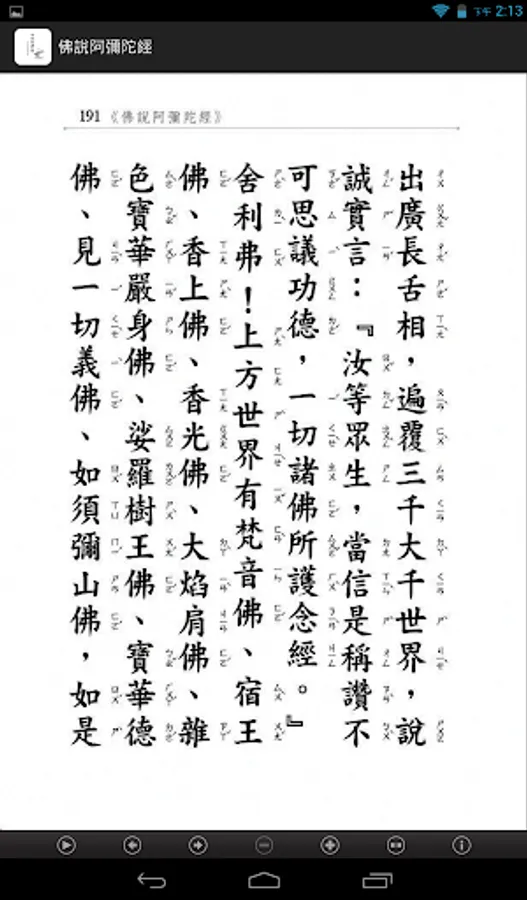 下午 2:13
佛說阿彌陀經
191《佛說阿彌陀經》
出廣長舌相，遍覆三千大千世界，說
誠實言：『汝等眾生，當信是稱讚不
可思議功德，一切諸佛所護念經。』
舍利弗！上方世界有梵音佛、宿王
佛、香上佛、香光佛、大焰肩佛、雜
色寶華嚴身佛、娑羅樹王佛、寶華德
佛、見一切義佛、如須彌山佛，如是